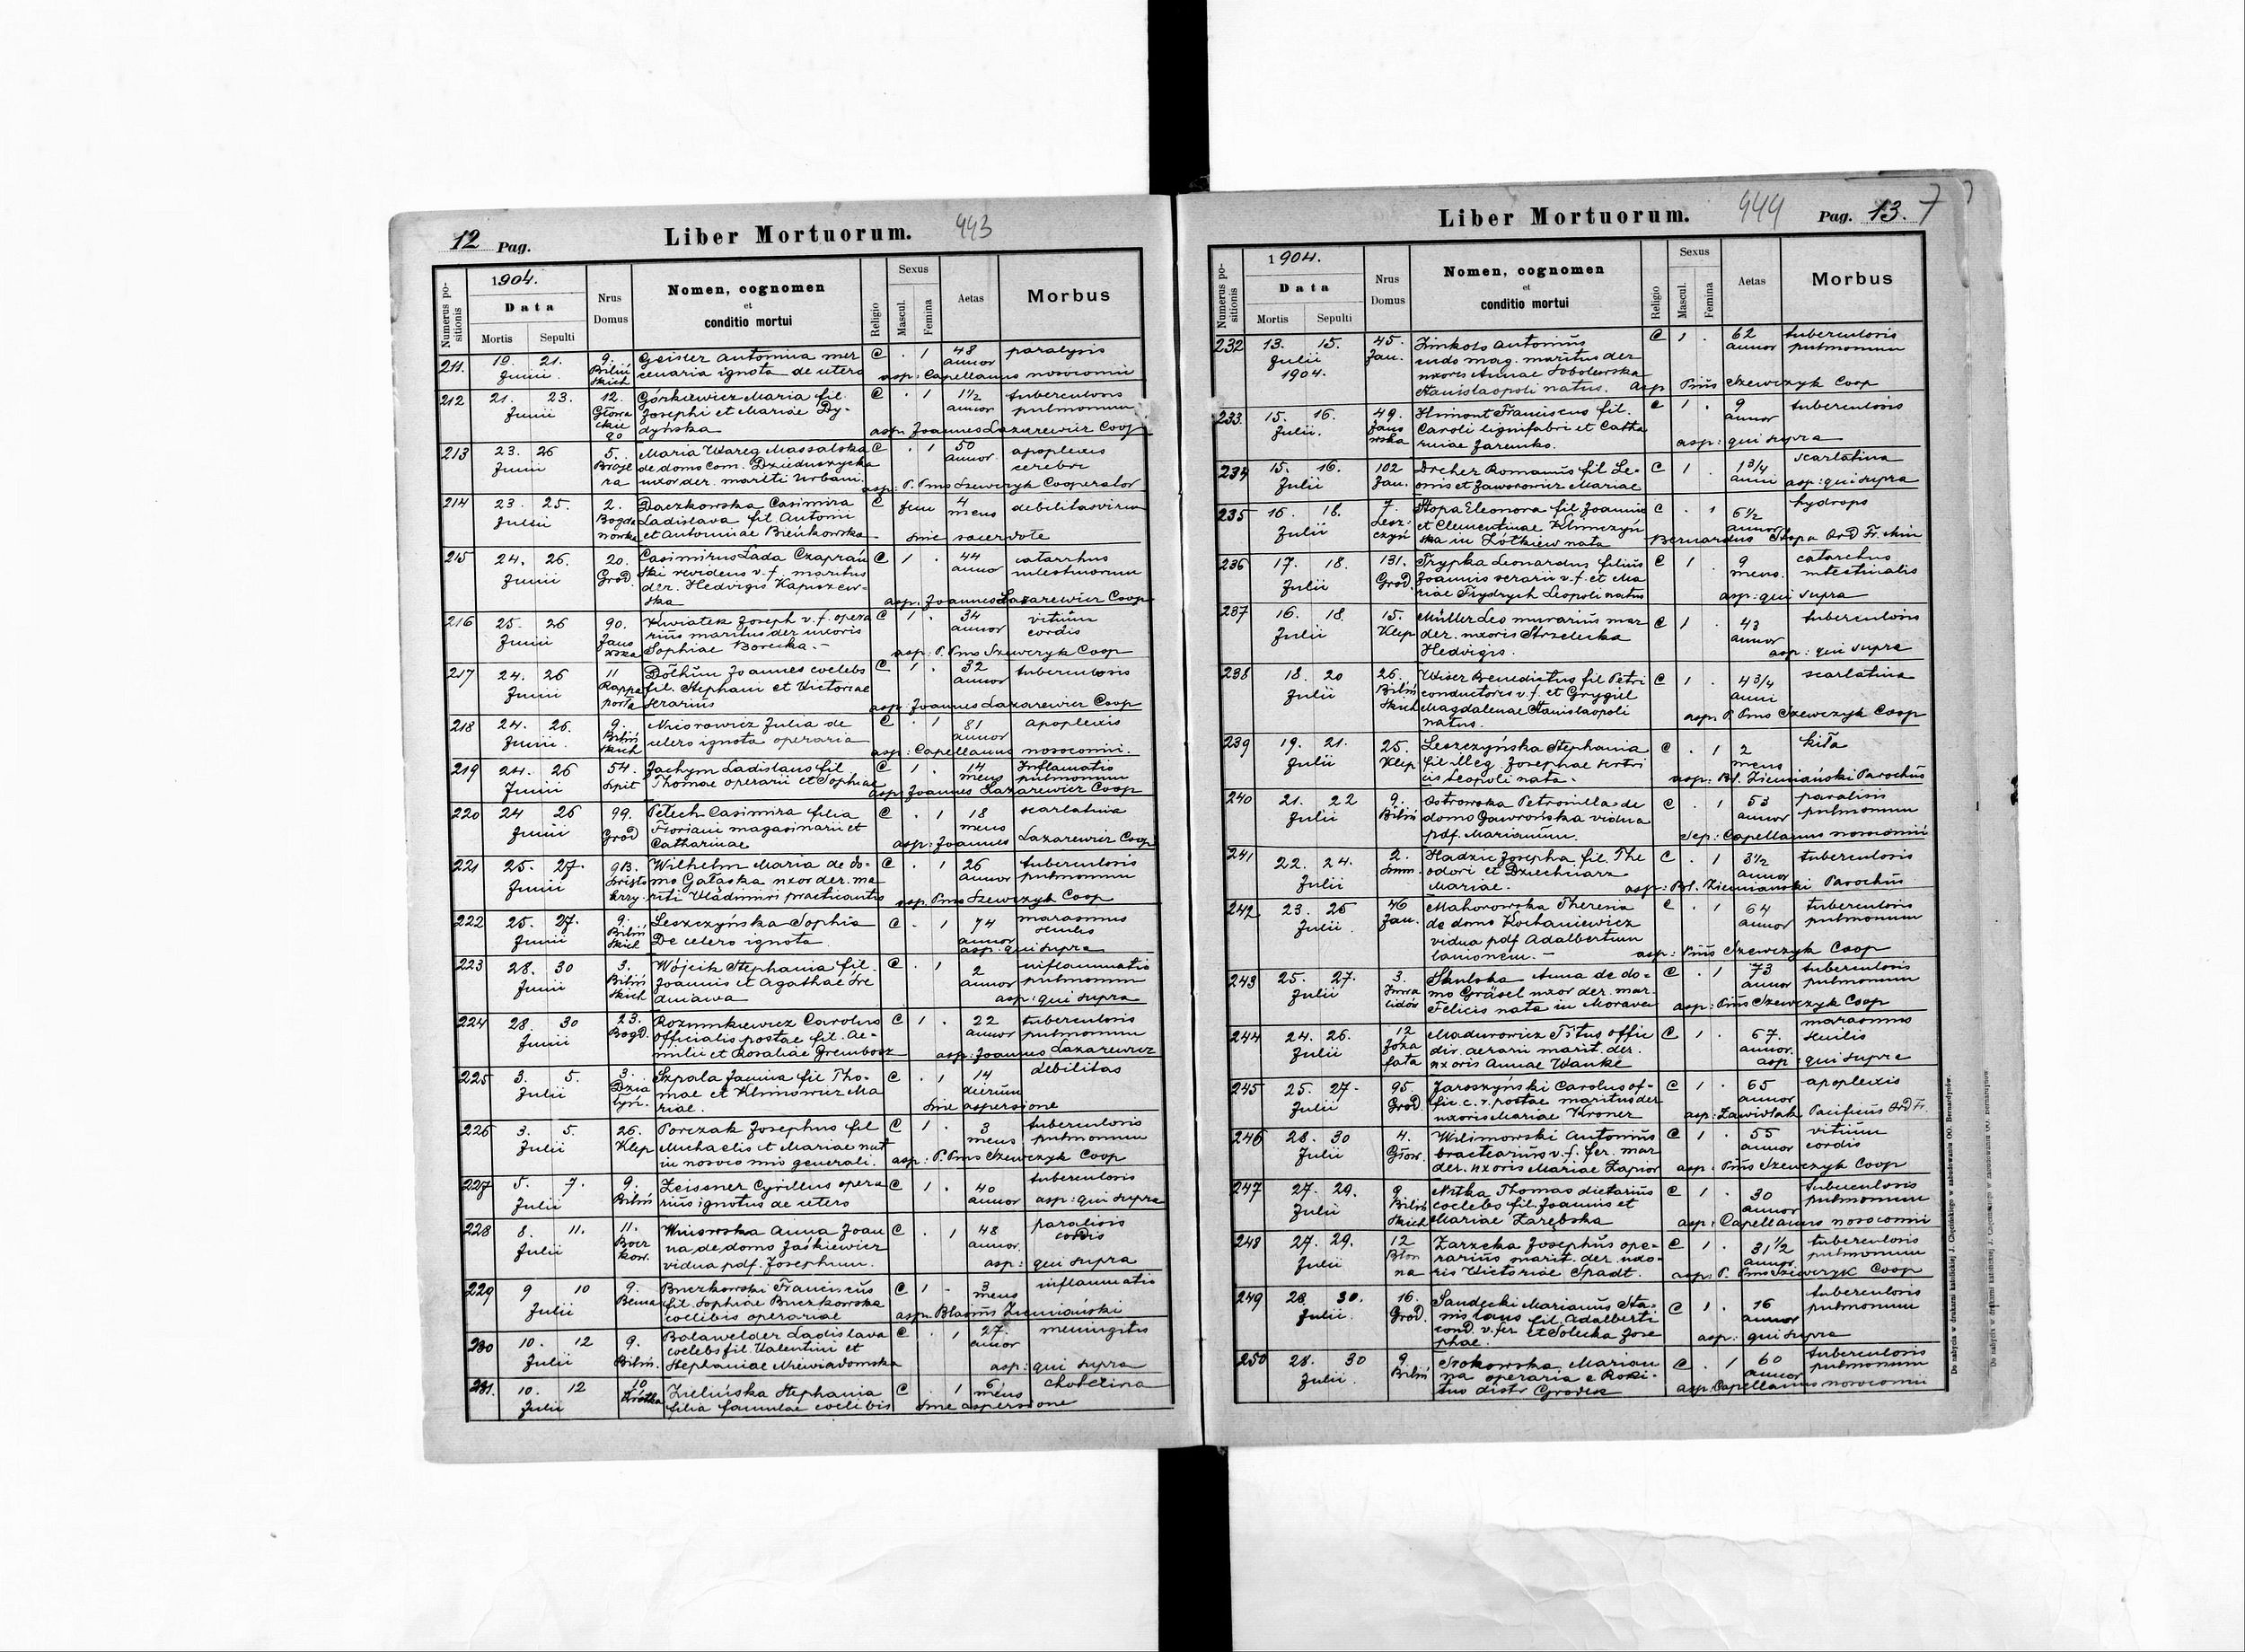 12 Pag.
Liber Mortuorum.
443
Numerus positionis
1904.
Data
Mortis
Sepulti
Nrus Domus
Nomen, cognomen
et
conditio mortui
Religio
Sexus
Mascul.
Femina
Aetas
Morbus
211. 19. 21. 9. Geisler Antonina mer C . 1 48 paralysis
Junii Biliń cenaria ignota de cetero annor
skich asp: Capellanus nosocomii
212 21. 23. 12. Górkiewicz Maria fil. C . 1 1½ tuberculosis
Junii Głowa Josephi et Mariae Dy- annor pulmonum
ckie dyńska asp. Joannes Lazarewicz Coop
go
213 23. 26 5. Maria Wareg Massalska C . 1 50 apoplexis
Junii de domo com. Dzieduszycka annor. cerebri
ra uxor der. mariti Urbani. asp: P. Pms Szewczyk Cooperator
214 23. 25. 2. Daczkowska Casimira C fem 4 debilitas virium
Bogda Ladislava fil Antoni mens
nówka et Antoninae Bieńkowska. sine sacerdote
215 24. 26. 20. Casimirus Lada Czaprań C 1 . 44 catarrhus
Junii Grod ski revidens v. f. maritus annor intestinorum
der. Hedvigis Kapszew-
ska asp: Joannes Lazarewicz Coop
216 25. 26 90. Kwiatek Joseph v. f. opera C 1 . 34 vitium
Junii Jano rius maritus der uxoris annor cordis
wska Sophiae Borecka. - asp: P. Pms Szewczyk Coop
217 24. 26 11 Joannes coelebs C 1 . 32 tuberculosis
Junii Rappa fil. Stephani et Victoriae annor
porta serarius asp: Joannes Lazarewicz Coop
218 24. 26. 9. Julia de C . 1 81 apoplexis
Junii. Biliń cetero ignota operaria annor
skich asp: Capellanus nosocomii.
219 24. 26 54. Jachym Ladislaus fil C 1 . 14 Inflamatio
Junii Szpit Thomae operarii et Sophiae mens pulmonum
asp: Joannes Lazarewicz Coop
220 24 26 99. Pełech Casimira filia C . 1 18 scarlatina
Junii Grod Floriani magasinarii et mens
Catharinae asp: Joannes Lazarewicz Coop
221 25. 27. 9B. Wilhelm Maria de do- C . 1 26 tuberculosis
Junii mo Gałaska uxor der. ma annor pulmonum
krzy riti Vladimiri practicantis asp. Pms Szewczyk Coop
222 25. 27. 9. Leszczyńska Sophia C . 1 74 marasmus
Junii Biliń De cetero ignota annor senilis
skich asp: qui supra
223 28. 30 3. Wójcik Stephania fil. C . 1 2 inflammatio
Junii Biliń Joannis et Agathae Śre annor pulmonum
skich dniawa asp: qui supra
224 28. 30 23. Rozumkiewicz Carolus C 1 . 22 tuberculosis
Junii Bogd. officialis postae fil. Ae- annor pulmonum
milii et Rosaliae Grembosz asp: Joannes Lazarewicz
225 3. 5. 3. Szpala Janina fil Tho- C . 1 14 debilitas
Julii Dzia mae et Klimowicz Ma dierum
łyń. riae. Sine aspersione
226 3. 5. 26. Porczak Josephus fil C 1 . 3 tuberculosis
Julii Klep Michaelis et Mariae nat mens pulmonum
in nosocomio generali. asp: P. Pms Szewczyk Coop
227 5. 7. 9. Zeissner Cyrillus opera C 1 . 40 tuberculosis
Julii Biliń rius ignotus de cetero annor asp: qui supra
228 8. 11. 11. Anna Joan C . 1 48 paralisis
Julii na de domo Jaśkiewicz annor. cordis
kow. vidua pdf. Josephum. asp: qui supra
229 9 10 9. Buczkowski Franciscus C 1 . 3 inflammatio
Julii Bema fil. Sophiae Buczkowska mens
coelibis operariae asp. Blasius Ziemiański
230 10. 12 9. Bolawelder Ladislava C . 1 27. meningitis
Julii Biliń. coelebs fil. Valentini et annor
Stephaniae Niewiadomska asp: qui supra
231. 10. 12 10 Zielińska Stephania C . 1 6 cholerina
Julii Krótka filia famulae coelibis mens
Sine aspersione
Liber Mortuorum.
444
Pag. 13.
7
Numerus positionis
1904.
Data
Mortis
Sepulti
Nrus Domus
Nomen, cognomen
et
conditio mortui
Religio
Sexus
Mascul.
Femina
Aetas
Morbus
232 13. 15. 45. Antonius C 1 . 62 tuberculosis
Julii Jan. mag. maritus der annor pulmonum
1904. uxoris Annae Sobolewska
Stanislaopoli natus. asp Pius Szewczyk Coop
233. 15. 16. 49. Franciscus fil. C 1 . 9 tuberculosis
Julii. Jano Caroli lignifabri et Catha annor
wska rinae Jaremko. asp: qui supra
234 15. 16. 102 Dreher Romanus fil Le- C 1 . 1 3/4 scarlatina
Julii Jan. onis et Jaworowicz Mariae anni asp: qui supra
235 16. 18. 7. Stopa Eleonora fil Joannis C . 1 6½ hydrops
Julii Lesz- et Clementinae Klimczyń annor
czyń ska in Żółkiew nata Bernardus Stopa Ord Fr. Min
236 17. 18. 131. Trypka Leonardus filius C 1 9 catarrhus
Julii Grod. Joannis serarii v. f. et Ma mens. intestinalis
riae Frydrych Leopoli natus asp: qui supra
237 16. 18. 15. Müller Leo murarius mar C 1 . 43 tuberculosis
Julii Klep der. uxoris Strzelecka annor
Hedvigis. asp: qui supra
238 18. 20 26. Wiser Benedictus fil Petri C 1 . 4 3/4 scarlatina
Julii Biliń conductoris v. f. et Grygiel anni
skich Magdalenae Stanislaopoli
natus. asp P. Pms Szewczyk Coop
239 19. 21. 25. Leszczyńska Stephania C . 1 2 kiła
Julii Klep fil illeg. Josephae sartri mens
cis Leopoli nata. asp: Bl. Ziemiański Parochus
240 21. 22 9. Ostrowska Petronilla de C . 1 53 paralisis
Julii Biliń domo Gaworońska vidua annor pulmonum
pdf. Marianum. Sep: Capellanus nosocomii
241 22. 24. 2. Hadzic Josepha fil. The C . 1 3½ tuberculosis
Julii odori et Dziechciarz annor
Mariae. asp: Bl. Ziemianski Parochus
242 23. 25 46 Mahorowska Theresia C . 1 64 tuberculosis
Julii. Jan. de domo Kochaniewicz annor pulmonum
vidua pdf Adalbertum
lanionem. - asp: Pius Szewczyk Coop
243 25. 27. 3. Skulska Anna de do- C . 1 73 tuberculosis
Julii Inwa mo Gräsel uxor der. mar. annor pulmonum
lidów Felicis nata in Moravia asp: Pius Szewczyk Coop
244 24. 26. 12 Madurowicz Titus offic C 1 . 67. marasmus
Julii Józa dir. aerarii marit. der. annor. senilis
fata uxoris Annae Wanke asp: qui supra
245 25. 27. 95. Jaroszyński Carolus of- C 1 . 65 apoplexis
Julii Grod. fic. c. r. postae maritus der annor
uxoris Mariae Kroner asp: Zawidlak Pacificus Ord Fr.
246 28. 30 4. Wilimowski Antonius C 1 . 55 vitium
Julii Głow. bractearius v. f. fer. mar annor cordis
der. uxoris Mariae Zapior asp: Pius Szewczyk Coop
247 27. 29. 9 Nitka Thomas dietarius C 1 . 30 tuberculosis
Julii Biliń coelebs fil. Joannis et annor pulmonum
skich Mariae Zarębska asp: Capellanus nosocomii
248 27. 29. 12 Zarzeka Josephus ope- C 1 . 31 ½ tuberculosis
Julii Błon rarius marit. der. uxo- annor pulmonum
na ris Victoriae Spadt. asp: P. Pms Szewczyk Coop
249 28 30. 16. Sandecki Marianus Sta- C 1 . 16 tuberculosis
Julii. Grod. nislaus fil. Adalberti annor pulmonum
cond. v. fer et Solecka Jose
phae. asp: qui supra
250 28. 30 9. Sokowska Marian C . 1 60 tuberculosis
Julii. Biliń na operaria e Roki- annor pulmonum
tno distr Grodek asp: Capellanus nosocomii
Do nabycia w drukarni katolickiej J. Chęcińskiego w zabudowaniu OO. Bernardynów.